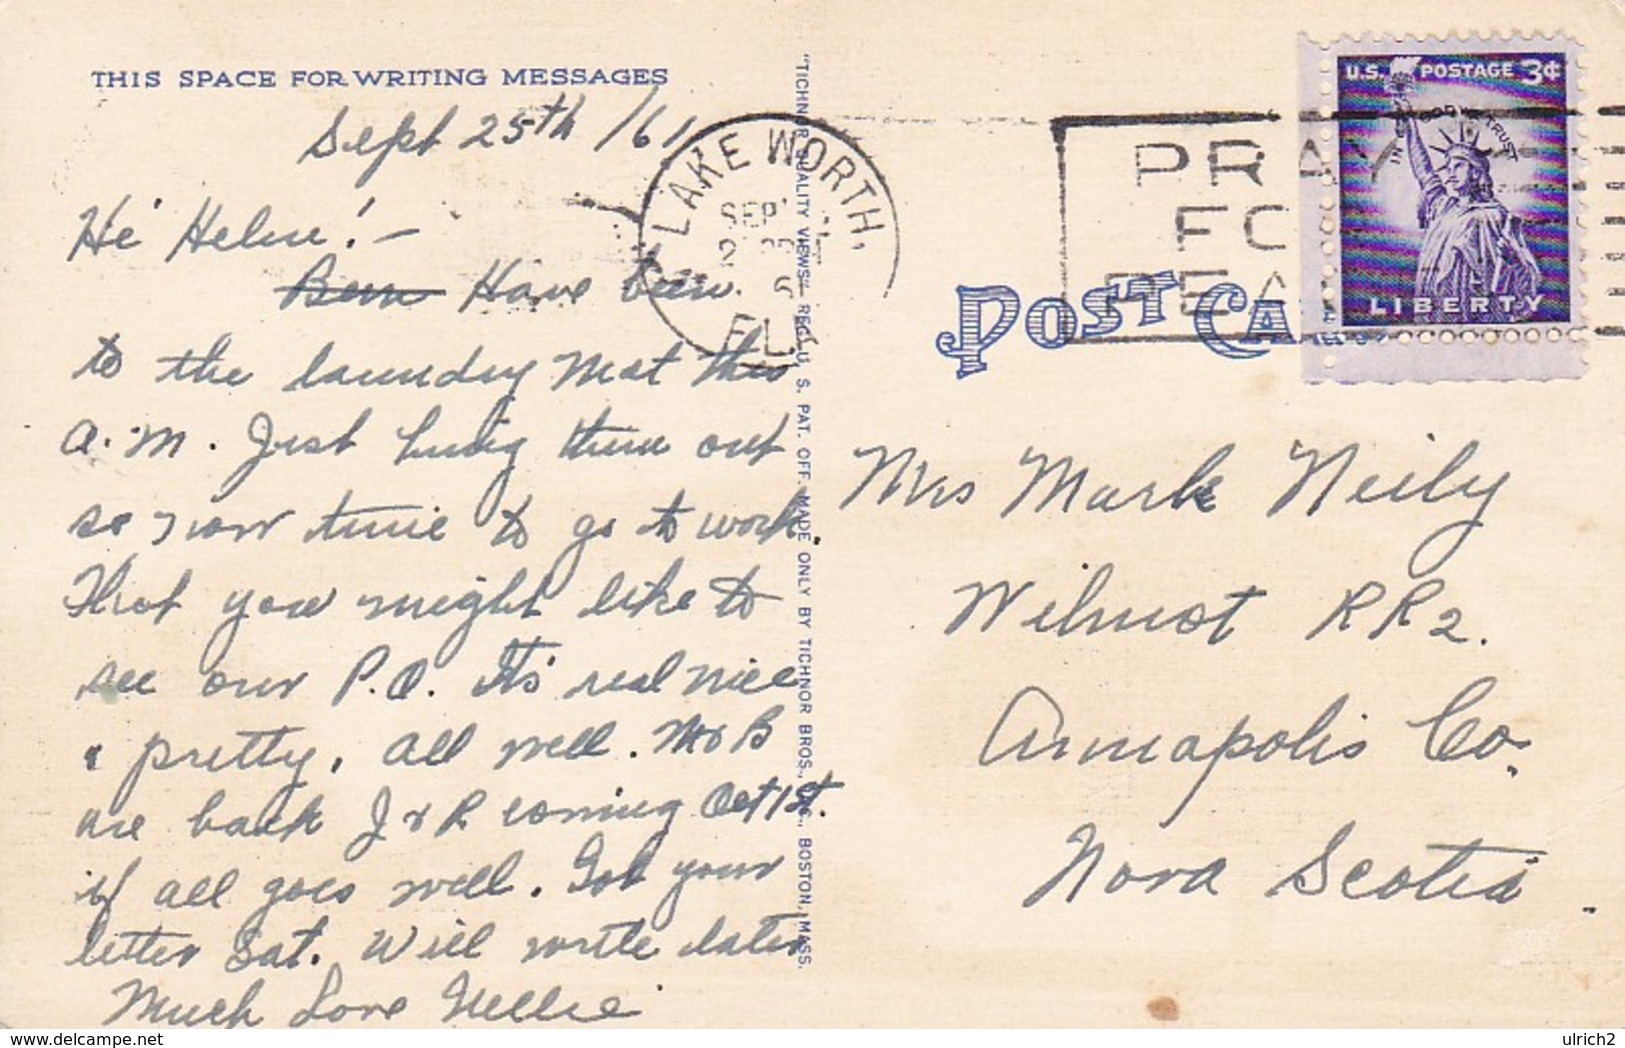 THIS SPACE FOR WRITING MESSAGES
Sept 25th /61
Hi Helen! –
Been Have been
to the laundry Mat this
a.m. Just hung them out
so now time to go to work.
Thot you might like to
see our P.O. It's real nice
& pretty. All well. M & B
are back J & R coming Oct 1st.
if all goes well. Got your
letter Sat. Will write later
Much Love Nellie
"TICHNOR QUALITY VIEWS" REG. U. S. PAT. OFF. MADE ONLY BY TICHNOR BROS., INC., BOSTON, MASS.
LAKE WORTH,
SEP
FLA
PRAY
FO
PEA
U.S. POSTAGE 3¢
IN GOD WE TRUST
LIBERTY
POST CA
Mrs Mark Neily
Wilmot RR2.
Annapolis Co.
Nova Scotia
ulrich2
delcampe.net